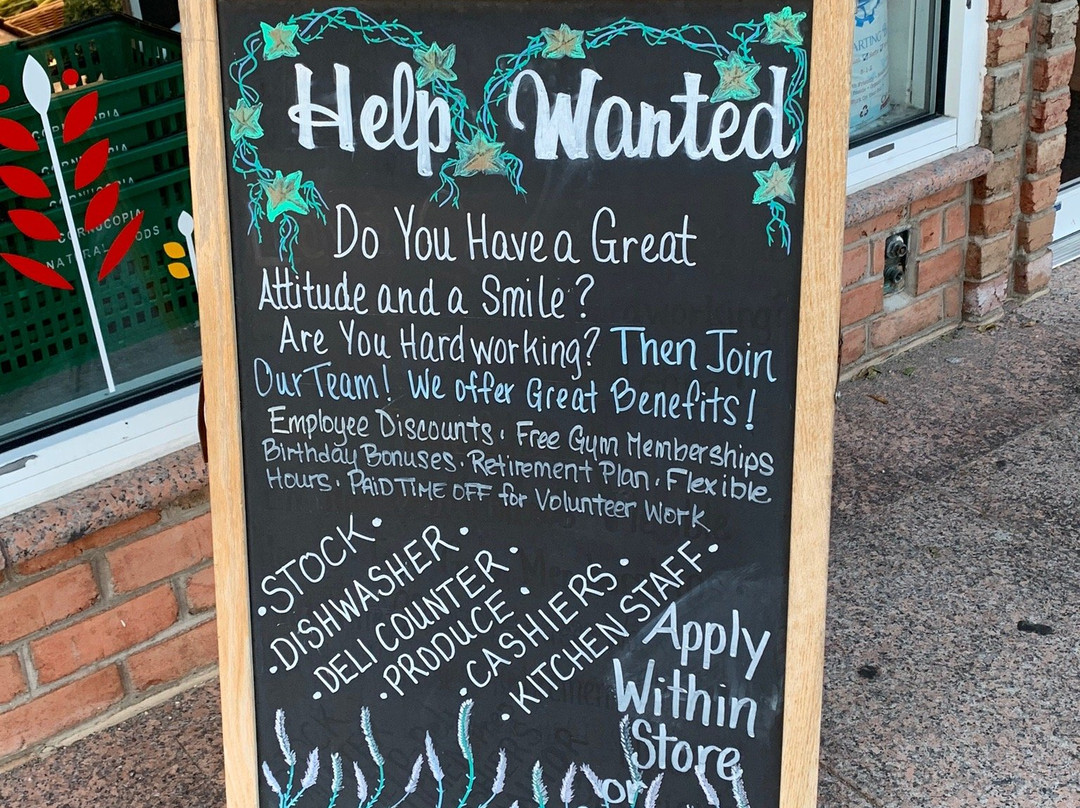 Help Wanted
Do You Have a Great
Attitude and a Smile?
Are You Hard working? Then Join
Our Team! We offer Great Benefits!
Employee Discounts · Free Gym Memberships
Birthday Bonuses · Retirement Plan · Flexible
Hours · PAID TIME OFF for Volunteer Work
• STOCK •
• DISHWASHER •
• DELI COUNTER •
• PRODUCE •
• CASHIERS •
• KITCHEN STAFF •
Apply
Within
Store
or
CORNUCOPIA
CORNUCOPIA
NATURAL FOODS